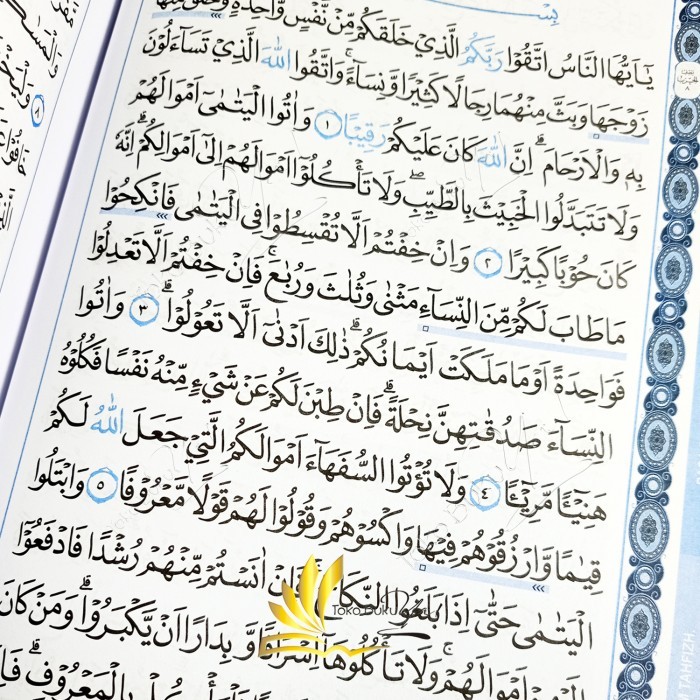 بِسْـ
يٰٓاَيُّهَا النَّاسُ اتَّقُوْا رَبَّكُمُ الَّذِيْ خَلَقَكُمْ مِّنْ نَّفْسٍ وَّاحِدَةٍ وَّخَلَقَ مِنْهَا
زَوْجَهَا وَبَثَّ مِنْهُمَا رِجَالًا كَثِيْرًا وَّنِسَاۤءًۚ وَاتَّقُوا اللّٰهَ الَّذِيْ تَسَاۤءَلُوْنَ
بِهٖ وَالْاَرْحَامَۗ اِنَّ اللّٰهَ كَانَ عَلَيْكُمْ رَقِيْبًا ١ وَاٰتُوا الْيَتٰمٰىٓ اَمْوَالَهُمْ
وَلَا تَتَبَدَّلُوا الْخَبِيْثَ بِالطَّيِّبِۖ وَلَا تَأْكُلُوْٓا اَمْوَالَهُمْ اِلٰٓى اَمْوَالِكُمْۗ اِنَّهٗ
كَانَ حُوْبًا كَبِيْرًا ٢ وَاِنْ خِفْتُمْ اَلَّا تُقْسِطُوْا فِى الْيَتٰمٰى فَانْكِحُوْا
مَا طَابَ لَكُمْ مِّنَ النِّسَاۤءِ مَثْنٰى وَثُلٰثَ وَرُبٰعَۚ فَاِنْ خِفْتُمْ اَلَّا تَعْدِلُوْا
فَوَاحِدَةً اَوْ مَا مَلَكَتْ اَيْمَانُكُمْۗ ذٰلِكَ اَدْنٰىٓ اَلَّا تَعُوْلُوْاۗ ٣ وَاٰتُوا
النِّسَاۤءَ صَدُقٰتِهِنَّ نِحْلَةًۗ فَاِنْ طِبْنَ لَكُمْ عَنْ شَيْءٍ مِّنْهُ نَفْسًا فَكُلُوْهُ
هَنِيْۤـًٔا مَّرِيْۤـًٔا ٤ وَلَا تُؤْتُوا السُّفَهَاۤءَ اَمْوَالَكُمُ الَّتِيْ جَعَلَ اللّٰهُ لَكُمْ
قِيٰمًا وَّارْزُقُوْهُمْ فِيْهَا وَاكْسُوْهُمْ وَقُوْلُوْا لَهُمْ قَوْلًا مَّعْرُوْفًا ٥ وَابْتَلُوا
الْيَتٰمٰى حَتّٰىٓ اِذَا بَلَغُوا النِّكَاحَۚ فَاِنْ اٰنَسْتُمْ مِّنْهُمْ رُشْدًا فَادْفَعُوْٓا
اِلَيْهِمْ اَمْوَالَهُمْۚ وَلَا تَأْكُلُوْهَآ اِسْرَافًا وَّبِدَارًا اَنْ يَّكْبَرُوْاۗ وَمَنْ كَانَ
بِالْمَعْرُوْفِۗ